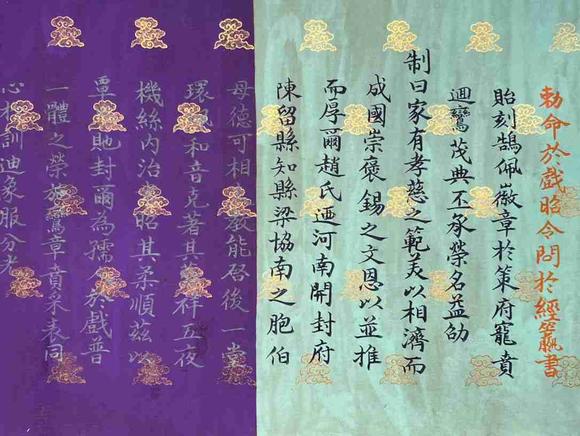 勅命於戲昭令問於經籯書
貽刻鵠佩徽章於策府寵賁
迴鸞茂典丕承榮名益劭
制曰家有孝慈之範美以相濟而
成國崇褒錫之文恩以並推
而厚爾趙氏迺河南開封府
陳留縣知縣梁協南之胞伯
母德可相教能啓後一堂
環和音克著其祥五夜
機絲內治昭其柔順茲以
覃貤封爾為孺於戲普
一體之榮於鸞章賁采表同
心相訓迪象服分